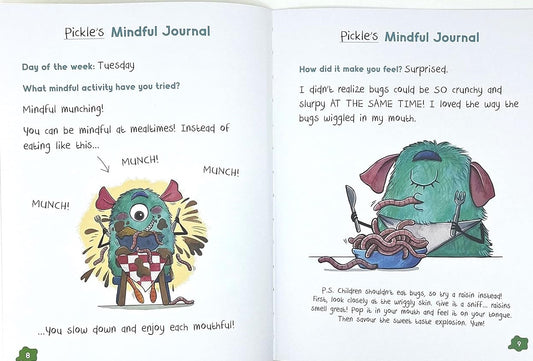 Pickle's Mindful Journal
Day of the week: Tuesday
What mindful activity have you tried?
Mindful munching!
You can be mindful at mealtimes! Instead of
eating like this...
MUNCH!
MUNCH!
MUNCH!
...You slow down and enjoy each mouthful!
8
Pickle's Mindful Journal
How did it make you feel? Surprised.
I didn't realize bugs could be SO crunchy and
slurpy AT THE SAME TIME! I loved the way the
bugs wiggled in my mouth.
P.S. Children shouldn't eat bugs, so try a raisin instead!
First, look closely at the wriggly skin. Give it a sniff... raisins
smell great! Pop it in your mouth and feel it on your tongue.
Then savour the sweet taste explosion. Yum!
9